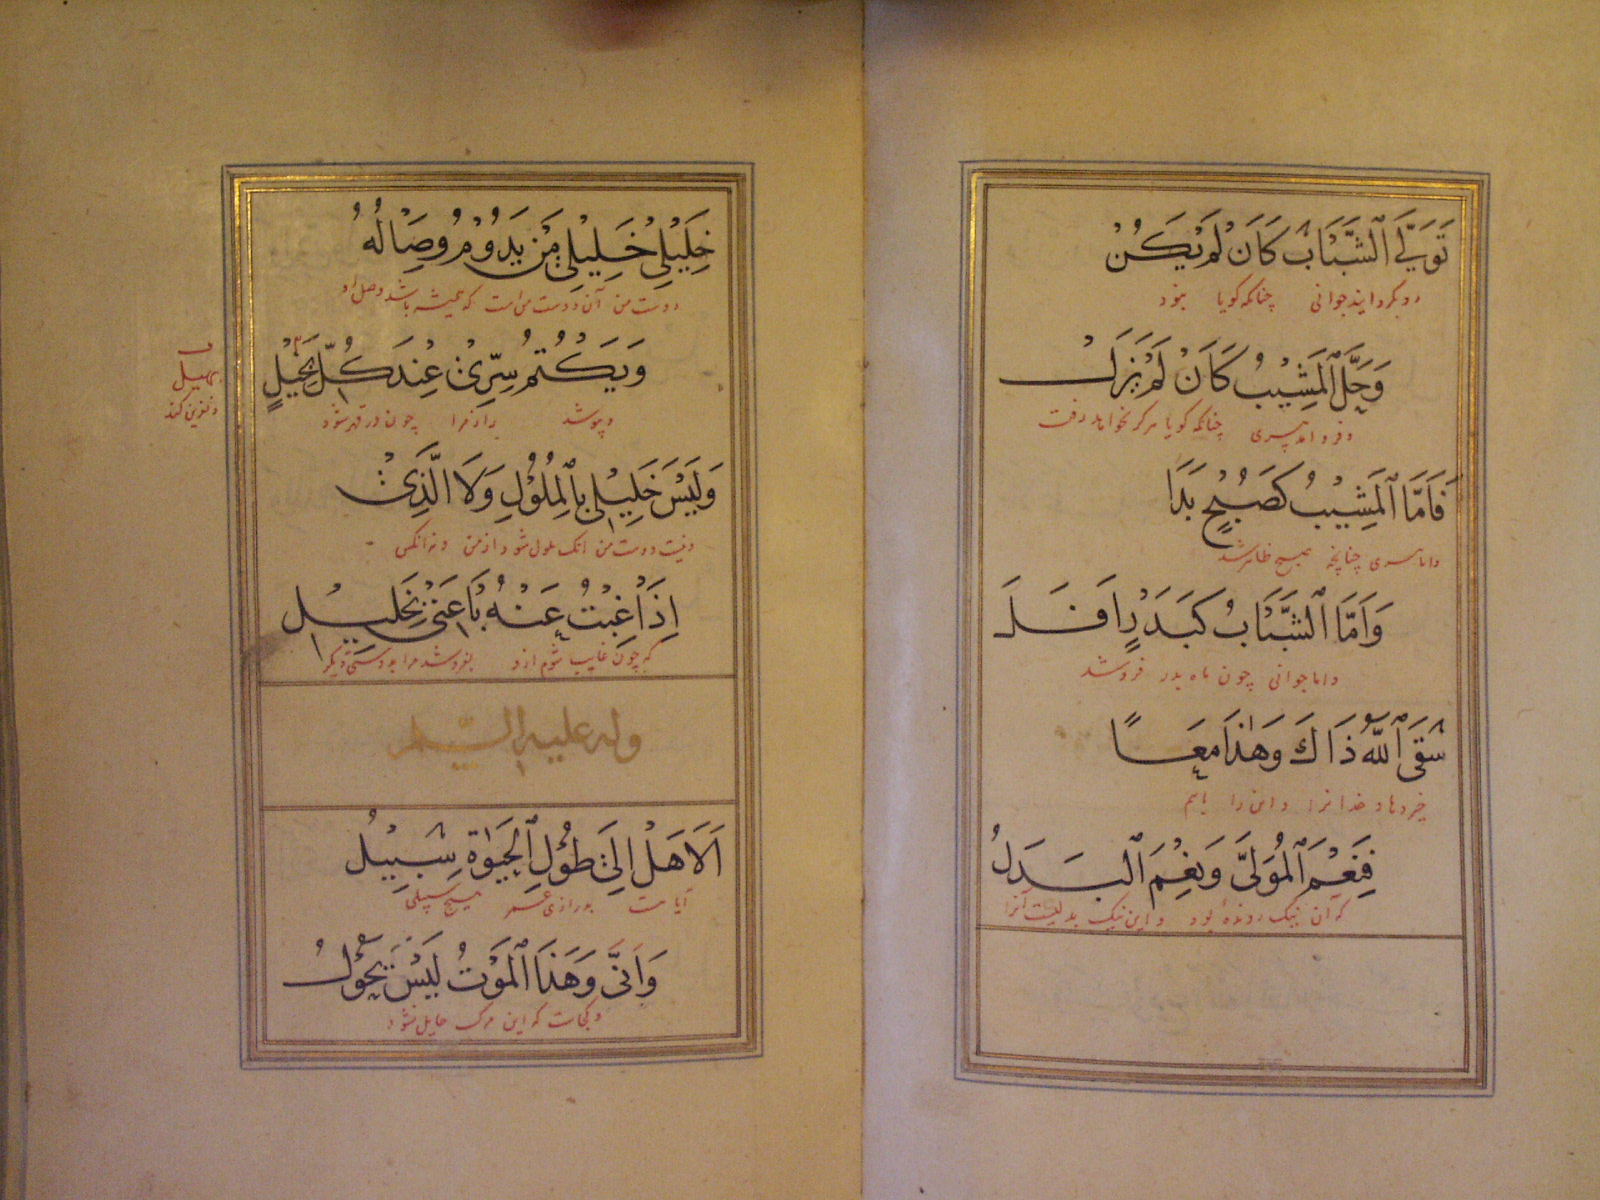 تَوَلَّى ٱلشَّبَابُ كَاَنْ لَمْ يَكُنْ
روبگردانید جوانی چنانکه گویا نبود
وَحَلَّ ٱلْمَشِيْبُ كَاَنْ لَمْ يَزَلْ
و فرود آمد پیری چنانکه گویا هرگز نخواهد رفت
فَاَمَّا ٱلْمَشِيْبُ كَصُبْحٍ بَدَا
و اما پیری چنانچه صبح ظاهر شد
وَاَمَّا ٱلشَّبَابُ كَبَدْرٍ اَفَلَ
و اما جوانی چون ماه بدر فروشد
سَقَى ٱللّٰهُ ذَاكَ وَهٰذَا مَعًا
خدا و این را باهم
فَنِعْمَ ٱلْمُوَلَّى وَنِعْمَ ٱلْبَدَلُ
که آن نیک رونده بود و این نیک بدلیست آنرا
خَلِيْلِىْ خَلِيْلِىْ مَنْ يَدُوْمُ وِصَالُهُ
دوست من آن دوست من است که همیشه باشد وصل او
وَيَكْتُمُ سِرِّىْ عِنْدَ كُلِّ
و پوشد راز مرا چون در قهر شود
وَلَيْسَ خَلِيْلِىْ بِٱلْمَلُوْلِ وَلَا الَّذِىْ
و نیست دوست من آنک ملول شود از من و نه آنکس
اِذَا غِبْتُ عَنْهُ بَاعَنِىْ بِخَلِيْلٍ
که چون غایب شوم ازو بفروشد مرا بدوستی دیگر
وله عليه السلم
اَلَا هَلْ اِلَى طُوْلِ ٱلْحَيٰوةِ سَبِيْلُ
آیا هست بدرازی عمر هیچ سبیلی
وَاَنَّى وَهَذَا ٱلْمَوْتُ لَيْسَ يَحُوْلُ
و کجاست که این مرگ حایل نشود